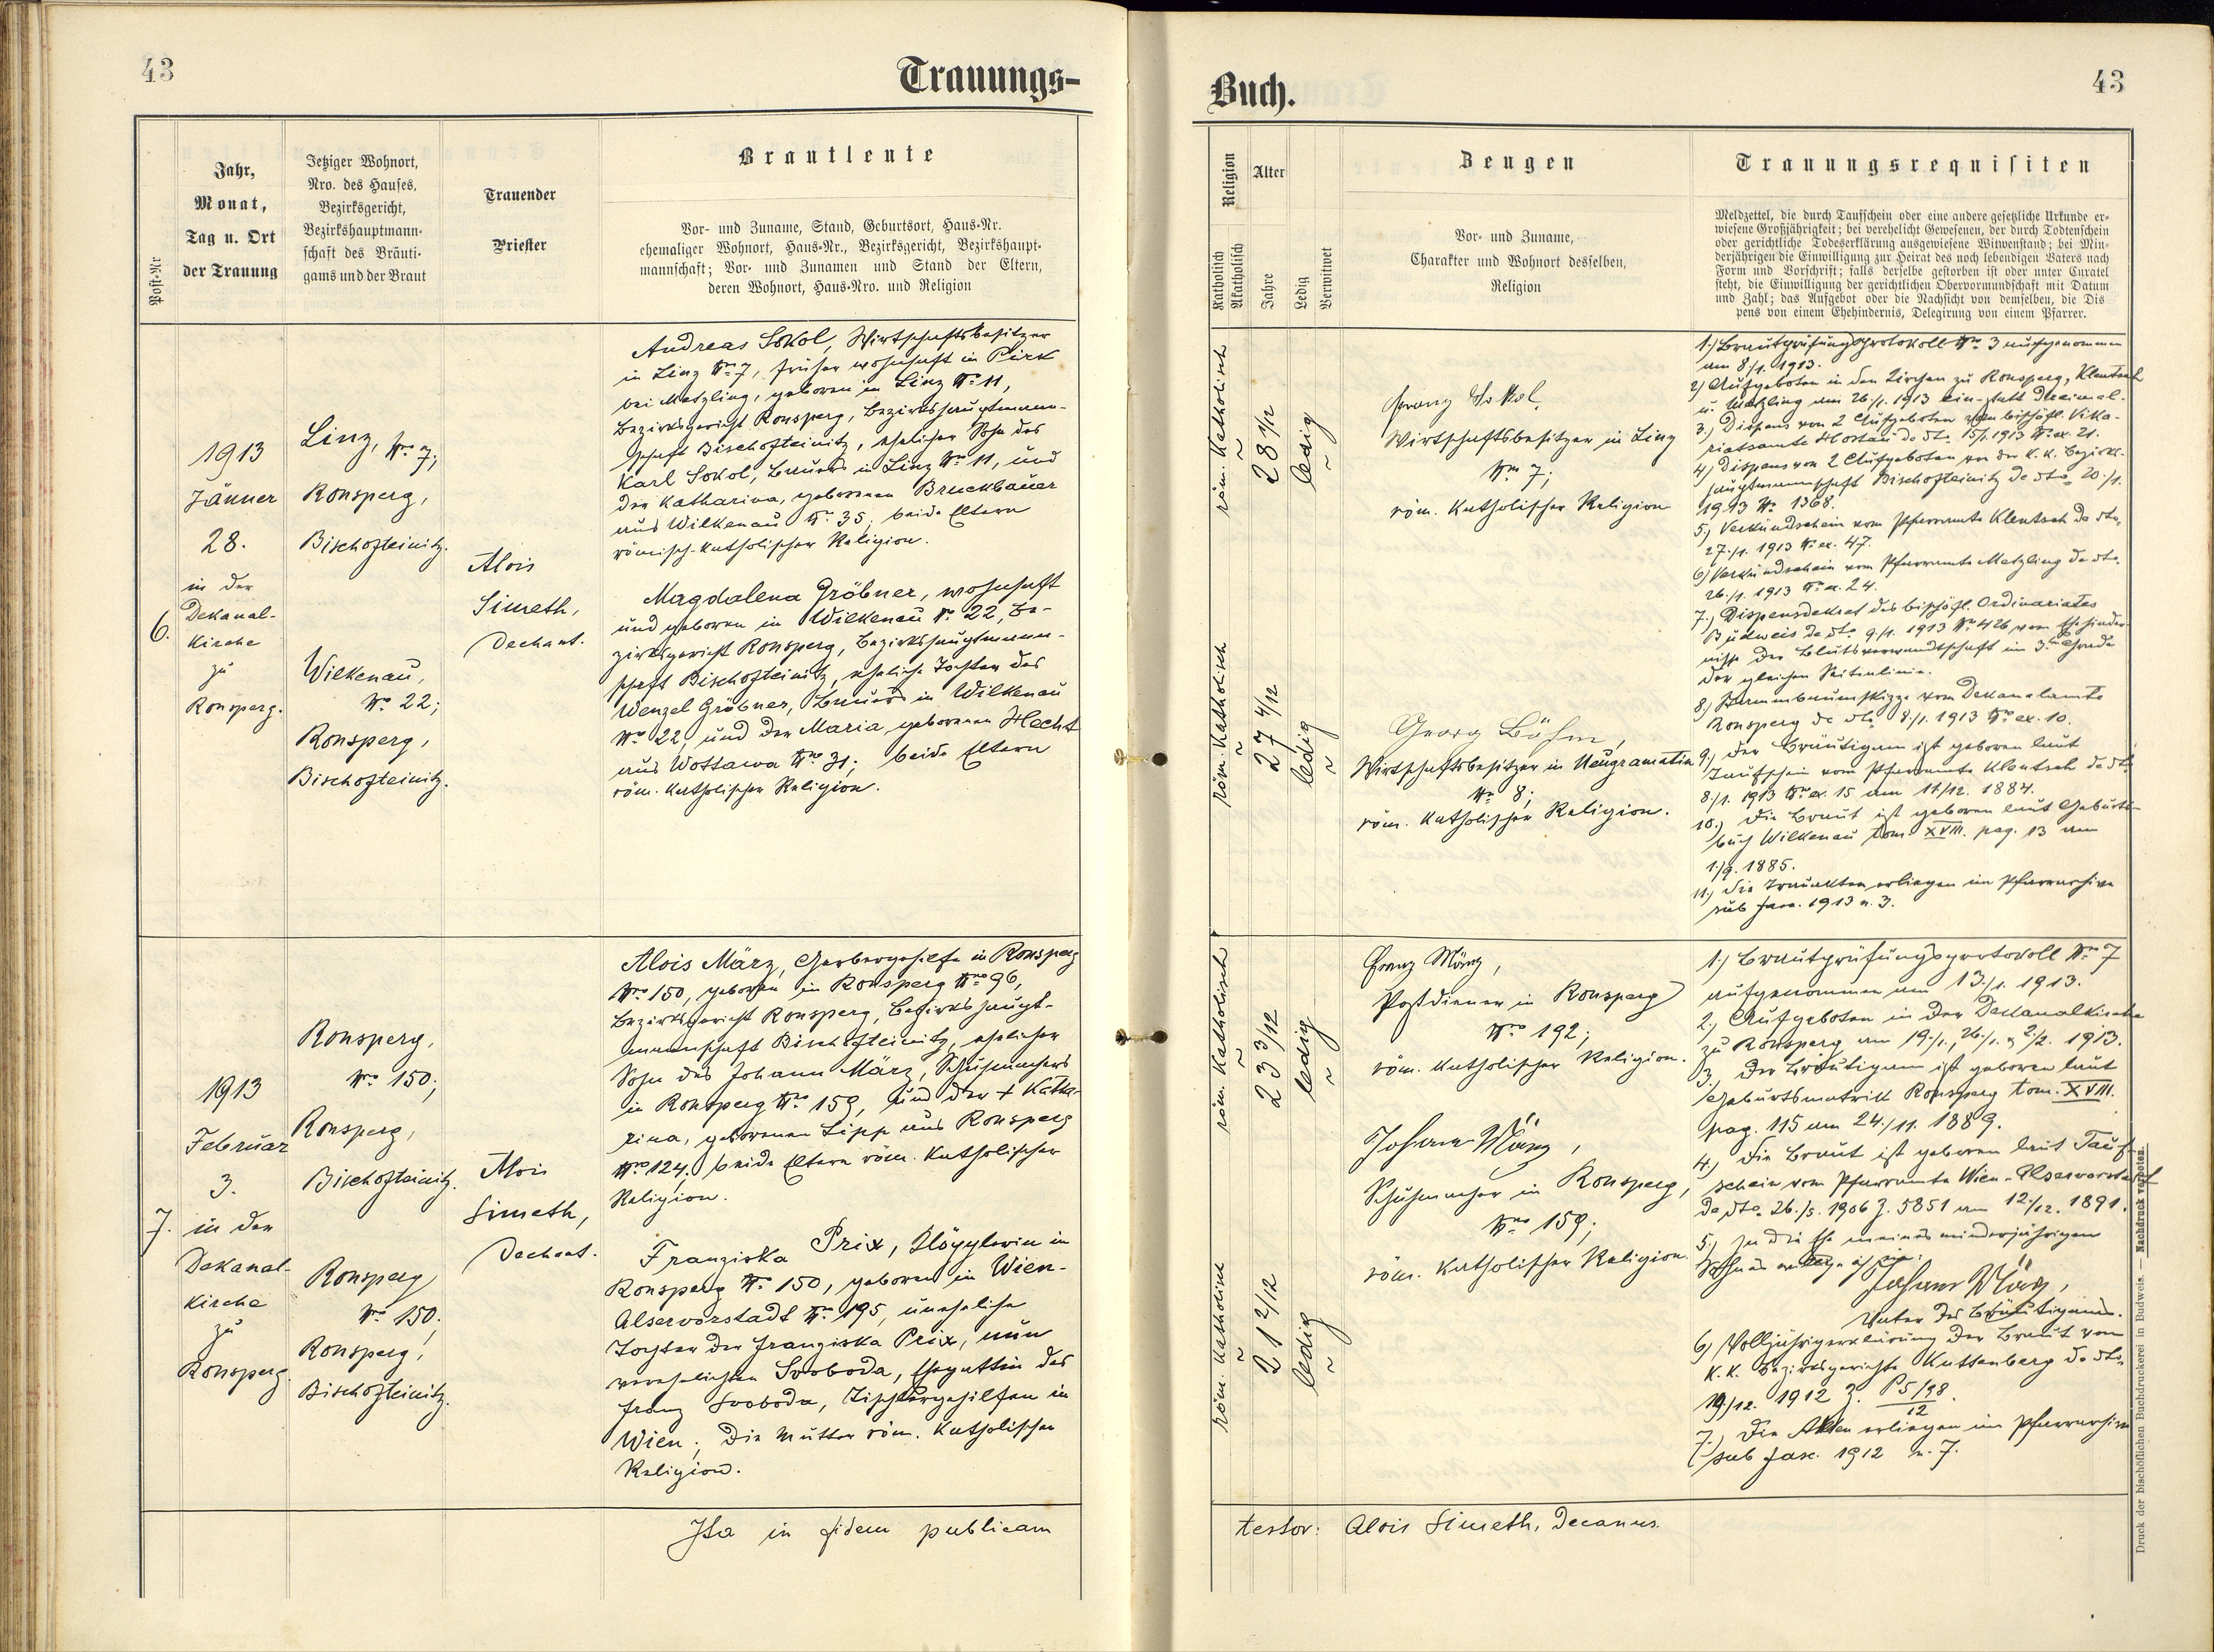 43
Trauungs-
Jahr,
Monat,
Tag u. Ort
der Trauung
Post-Nr
Jetziger Wohnort,
Nro. des Hauses,
Bezirksgericht,
Bezirkshauptmann-
schaft des Bräuti-
gams und der Braut
Trauender
Priester
Brautleute
Vor- und Zuname, Stand, Geburtsort, Haus-Nr.
ehemaliger Wohnort, Haus-Nr., Bezirksgericht, Bezirkshaupt-
mannschaft; Vor- und Zunamen und Stand der Eltern,
deren Wohnort, Haus-Nro. und Religion
6.
1913
Jänner
28.
in der
Dekanal-
kirche
zu
Ronsperg.
Linz, Nro 7;
Ronsperg,
Bischofteinitz.
Wilkenau,
Nro 22;
Ronsperg,
Bischofteinitz.
Alois
Simeth,
Dechant.
Andreas Sokol, Wirtschaftsbesitzer
in Linz Nro 7, früher wohnhaft in Pirk
bei Metzling, geboren in Linz No 11,
Bezirksgericht Ronsperg, Bezirkshauptmann-
schaft Bischofteinitz, ehelicher Sohn des
Karl Sokol, Bauers in Linz Nro 11, und
der Katharina, geborenen Bruckbauer
aus Wilkenau No 35; beide Eltern
römisch-katholischer Religion.
Magdalena Gröbner, wohnhaft
und geboren in Wilkenau No 22, Be-
zirksgericht Ronsperg, Bezirkshauptmann-
schaft Bischofteinitz, eheliche Tochter des
Wenzel Gröbner, Bauers in Wilkenau
Nro 22, und der Maria, geborenen Hecht
aus Wottawa Nro 31; beide Eltern
röm. katholischer Religion.
7.
1913
Februar
3.
in der
Dekanal-
kirche
zu
Ronsperg.
Ronsperg,
Nro 150;
Ronsperg,
Bischofteinitz.
Ronsperg
Nro 150;
Ronsperg,
Bischofteinitz.
Alois
Simeth,
Dechant.
Alois März, Gerbergehilfe in Ronsperg
Nro 150, geboren in Ronsperg Nro 96,
Bezirksgericht Ronsperg, Bezirkshaupt-
mannschaft Bischofteinitz, ehelicher
Sohn des Johann März, Schuhmachers
in Ronsperg Nro 159, und der + Katha-
rina, geborenen Lipp aus Ronsperg
Nro 124, beide Eltern röm. katholischer
Religion.
Franziska Prix, Klöpplerin in
Ronsperg No 150, geboren in Wien-
Alservorstadt No 195, uneheliche
Tochter der Franziska Prix, nun
verehelichten Svoboda, Ehegattin des
Franz Svoboda, Tischlergehilfen in
Wien; die Mutter röm. katholischer
Religion.
Ita in fidem publicam
Buch.
43
Religion
Katholisch
Akatholisch
Alter
Jahre
Ledig
Verwitwet
Zeugen
Vor- und Zuname,
Charakter und Wohnort desselben,
Religion
Trauungsrequisiten
Meldzettel, die durch Taufschein oder eine andere gesetzliche Urkunde er-
wiesene Großjährigkeit; bei verehelicht Gewesenen, der durch Todtenschein
oder gerichtliche Todeserklärung ausgewiesene Witwenstand; bei Min-
derjährigen die Einwilligung zur Heirat des noch lebendigen Vaters nach
Form und Vorschrift; falls derselbe gestorben ist oder unter Curatel
steht, die Einwilligung der gerichtlichen Obervormundschaft mit Datum
und Zahl; das Aufgebot oder die Nachsicht von demselben, die Dis
pens von einem Ehehindernis, Delegirung von einem Pfarrer.
röm. katholisch
28 1/12
ledig
röm. katholisch
27 4/12
ledig
Franz Sokol,
Wirtschaftsbesitzer in Linz
Nro 7;
röm. katholischer Religion
Georg Böhm,
Wirtschaftsbesitzer in Neugramatin
Nro 8;
röm. katholischer Religion.
1.) Brautprüfungsprotokoll Nro 3 aufgenommen
am 8/1. 1913.
2) Aufgeboten in den Kirchen zu Ronsperg, Klentsch
u. Metzling am 26/1. 1913 ein- statt dreimal.
3.) Dispens von 2 Aufgeboten vom bischöfl. Vika-
riatsamte Hostau de dto. 15/1. 1913 No ex. 21.
4) Dispens von 2 Aufgeboten von der k. k. Bezirks-
hauptmannschaft Bischofteinitz de dto 20./1.
1913 No 1368.
5.) Verkündschein vom Pfarramte Klentsch de dto.
27./1. 1913 No ex. 47.
6) Verkündschein vom Pfarramte Metzling de dto.
26./1. 1913 No ex. 24.
7.) Dispensdekret des bischöfl. Ordinariates
Budweis de dto 9/1. 1913 No 426 vom Ehehinder-
nisse der Blutsverwandtschaft im 3. Grade
der gleichen Seitenlinie.
8.) Stammbaumskizze vom Dekanalamte
Ronsperg de dto 8./1. 1913 No ex. 10.
9.) Der Bräutigam ist geboren laut
Taufschein vom Pfarramte Klentsch de dto.
8./1. 1913 No ex. 15 am 11/12. 1884.
10.) Die Braut ist geboren laut Geburts-
buch Wilkenau tom. XVIII. pag. 13 am
1./9. 1885.
11.) Die Trauakten erliegen im Pfarrarchive
sub fasc. 1913 n. 3.
röm. katholisch
23 3/12
ledig
röm. katholisch
21 2/12
ledig
Franz März,
Postdiener in Ronsperg
Nro 192;
röm. katholischer Religion.
Johann März,
Schuhmacher in Ronsperg,
Nro 159;
röm. katholischer Religion.
1.) Brautprüfungsprotokoll Nro 7
aufgenommen am 13./1. 1913.
2.) Aufgeboten in der Dekanalkirche
zu Ronsperg am 19./1., 26./1. & 2./2. 1913.
3.) Der Bräutigam ist geboren laut
Geburtsmatrik Ronsperg tom. XVIII.
pag. 115 am 24./11. 1889.
4.) Die Braut ist geboren laut Tauf-
schein vom Pfarramte Wien-Alservorstadt
de dto. 26./5. 1906 Z. 5851 am 12./12. 1891.
5.) In die Ehe meines minderjährigen
Sohnes willige ich ein:
Johann März,
Vater des Bräutigams.
6) Volljährigerklärung der Braut vom
k. k. Bezirksgerichte Kuttenberg de dto.
19/12. 1912 Z. P5/98
12
7.) Die Akten erliegen im Pfarrarchive
sub fasc. 1912 n. 7.
testor: Alois Simeth, Decanus.
Druck der bischöflichen Buchdruckerei in Budweis. — Nachdruck verboten.